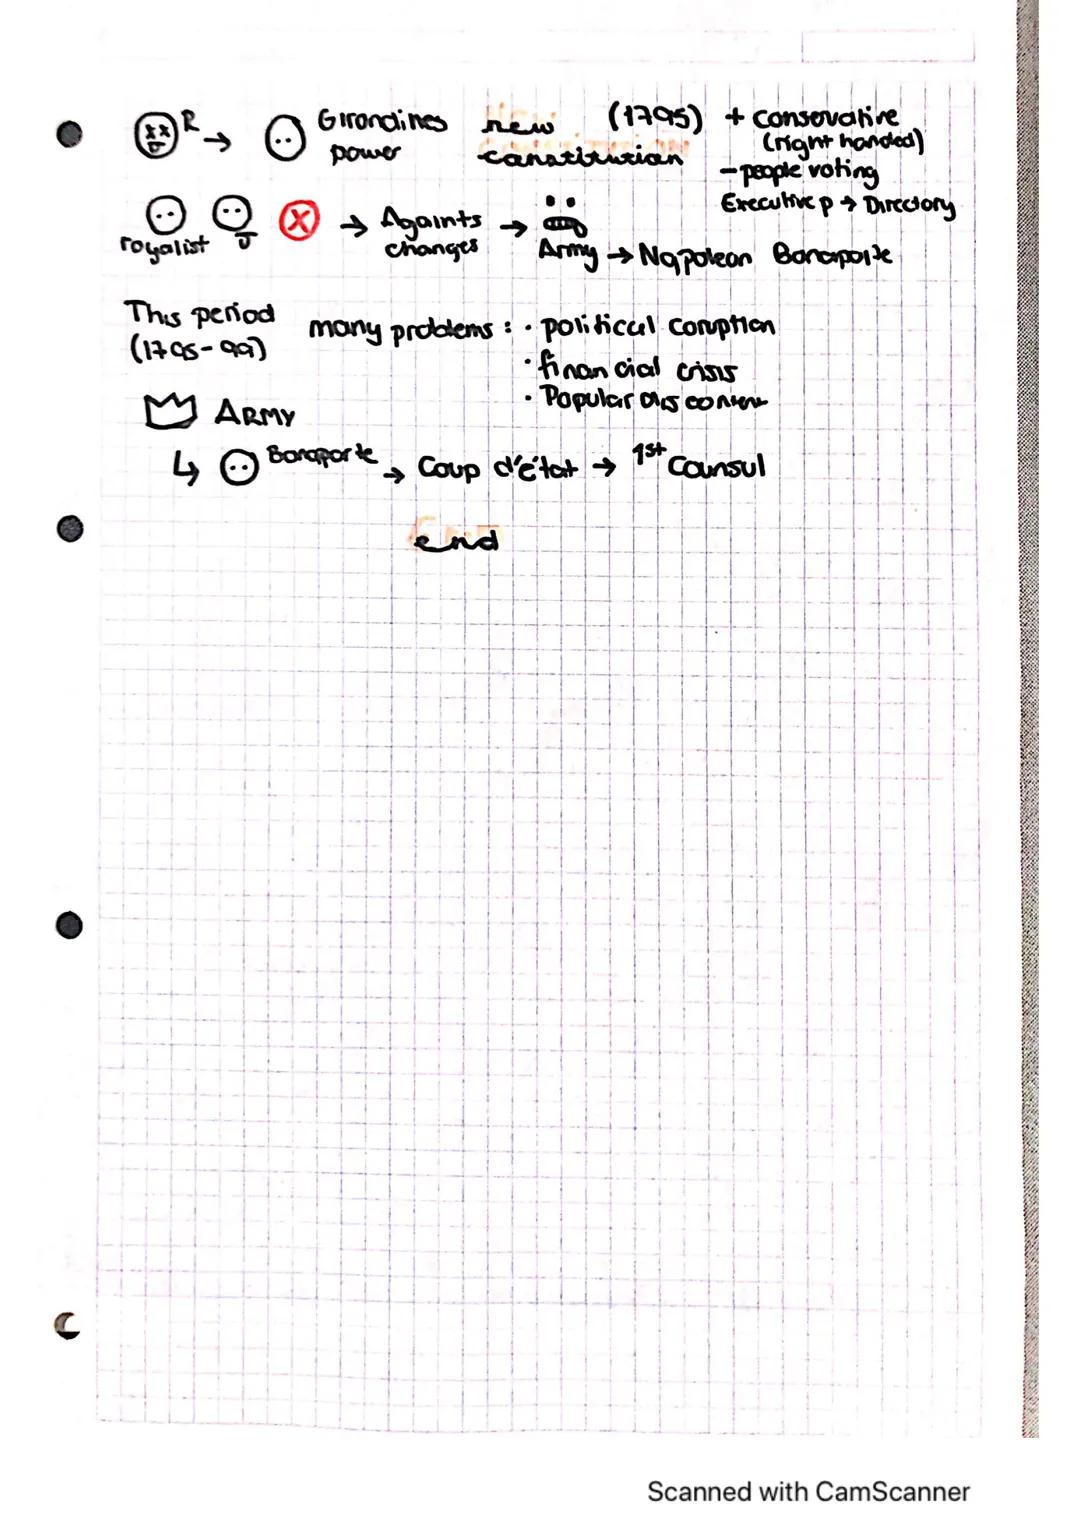 R → Girondines power new constitution (1795) + conservative
(right handed)
- people voting
Executive p → Directory
royalist J X → Againts changes → Army → Napolean Bonaparte
This period many problems : · political coruption
(1795-99)
· financial crisis
· Popular discontent
ARMY
↳ Bonaparte → Coup d'état → 1st Counsul
end
Scanned with CamScanner